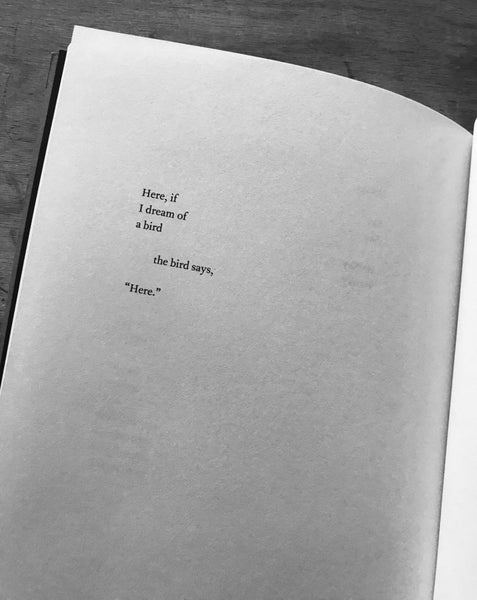 Here, if
I dream of
a bird
the bird says,
“Here.”